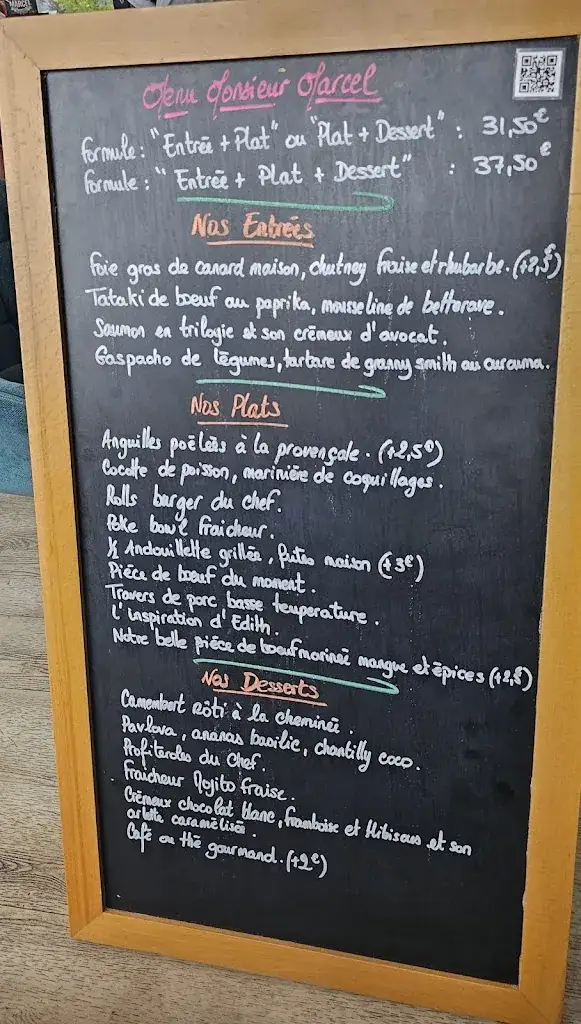 MARCEL
Menu Monsieur Marcel
Formule : "Entrée + Plat" ou "Plat + Dessert" : 31,50€
Formule : "Entrée + Plat + Dessert" : 37,50€
Nos Entrées
Foie gras de canard maison, chutney fraise et rhubarbe. (+2,5€)
Tataki de boeuf au paprika, mousseline de betterave.
Saumon en trilogie et son crémeux d'avocat.
Gaspacho de légumes, tartare de granny smith au curcuma.
Nos Plats
Anguilles poëlées à la provençale. (+2,5€)
Cocotte de poisson, marinière de coquillages.
Rolls burger du chef.
Poke bowl fraicheur.
½ Andouillette grillée, frites maison (+3€)
Pièce de boeuf du moment.
Travers de porc basse temperature.
L'inspiration d'Edith.
Notre belle pièce de boeuf marinée mangue et épices (+2,5€)
Nos Desserts
Camembert rôti à la cheminée.
Pavlova, ananas basilic, chantilly coco.
Profiteroles du Chef.
Fraicheur Mojito fraise.
Crémeux chocolat blanc, framboise et Hibiscus et son
arlette caramélisée.
Café ou thé gourmand. (+2€)